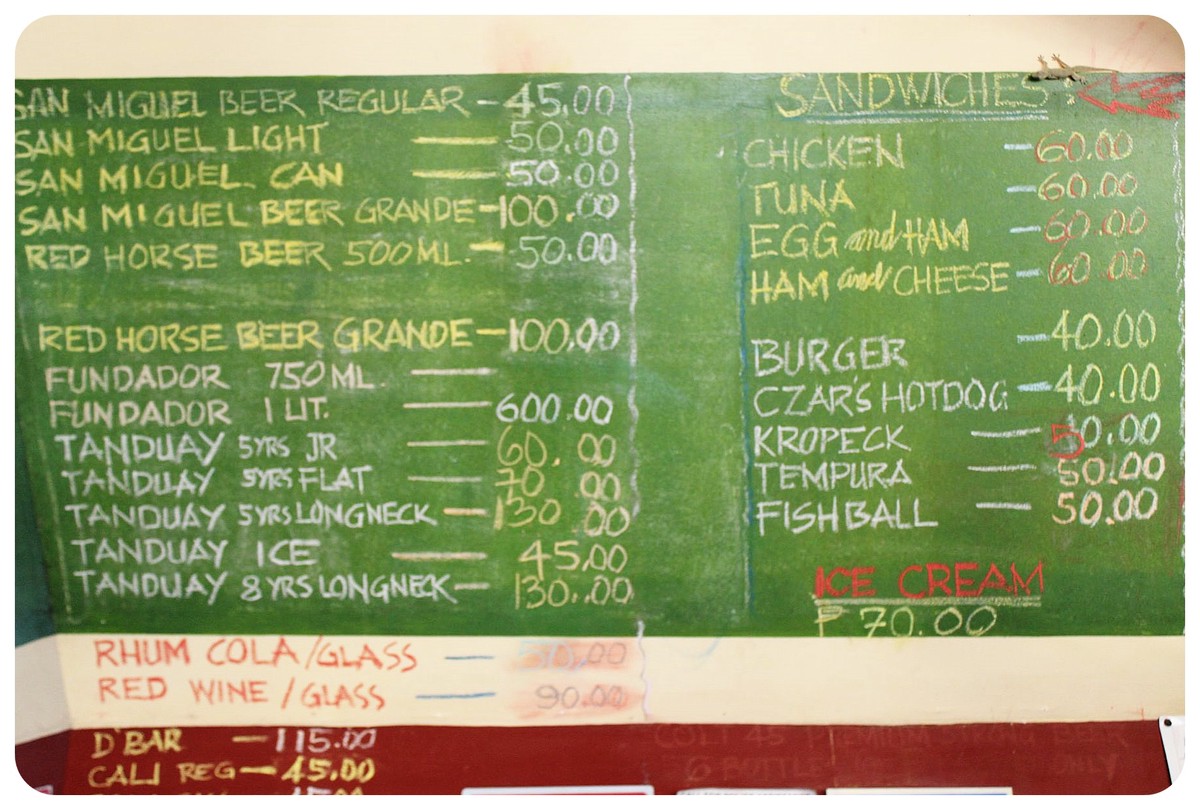 SAN MIGUEL BEER REGULAR - 45.00
SAN MIGUEL LIGHT — 50.00
SAN MIGUEL CAN — 50.00
SAN MIGUEL BEER GRANDE - 100.00
RED HORSE BEER 500ML. - 50.00
RED HORSE BEER GRANDE - 100.00
FUNDADOR 750ML —
FUNDADOR 1 LIT. — 600.00
TANDUAY 5YRS JR — 60.00
TANDUAY 5YRS FLAT — 70 00
TANDUAY 5YRS LONGNECK — 130.00
TANDUAY ICE — 45.00
TANDUAY 8YRS LONGNECK — 130..00
RHUM COLA/GLASS —
RED WINE/GLASS — 90.00
D'BAR — 115.00
CALI REG — 45.00
SANDWICHES:
CHICKEN - 60.00
TUNA - 60.00
EGG and HAM - 60.00
HAM and CHEESE - 60.00
BURGER - 40.00
CZAR'S HOTDOG - 40.00
KROPECK — 50.00
TEMPURA — 50.00
FISHBALL — 50.00
ICE CREAM
P 70.00
COLT 45 PREMIUM STRONG BEER
6 BOTTLE ONLY